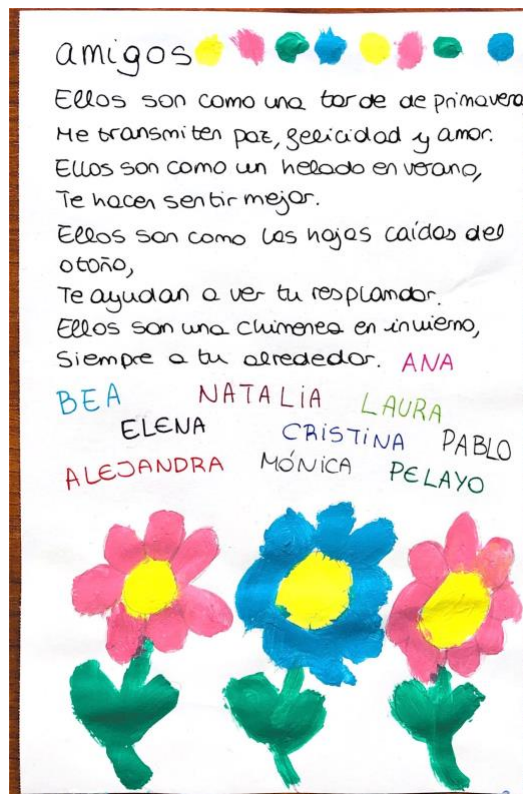 amigos
Ellos son como una tarde de primavera
Me transmiten paz, felicidad y amor.
Ellos son como un helado en verano,
Te hacen sentir mejor.
Ellos son como las hojas caídas del
otoño,
Te ayudan a ver tu resplandor.
Ellos son una chimenea en invierno,
Siempre a tu alrededor. ANA
BEA NATALIA LAURA
ELENA CRISTINA PABLO
ALEJANDRA MÓNICA PELAYO